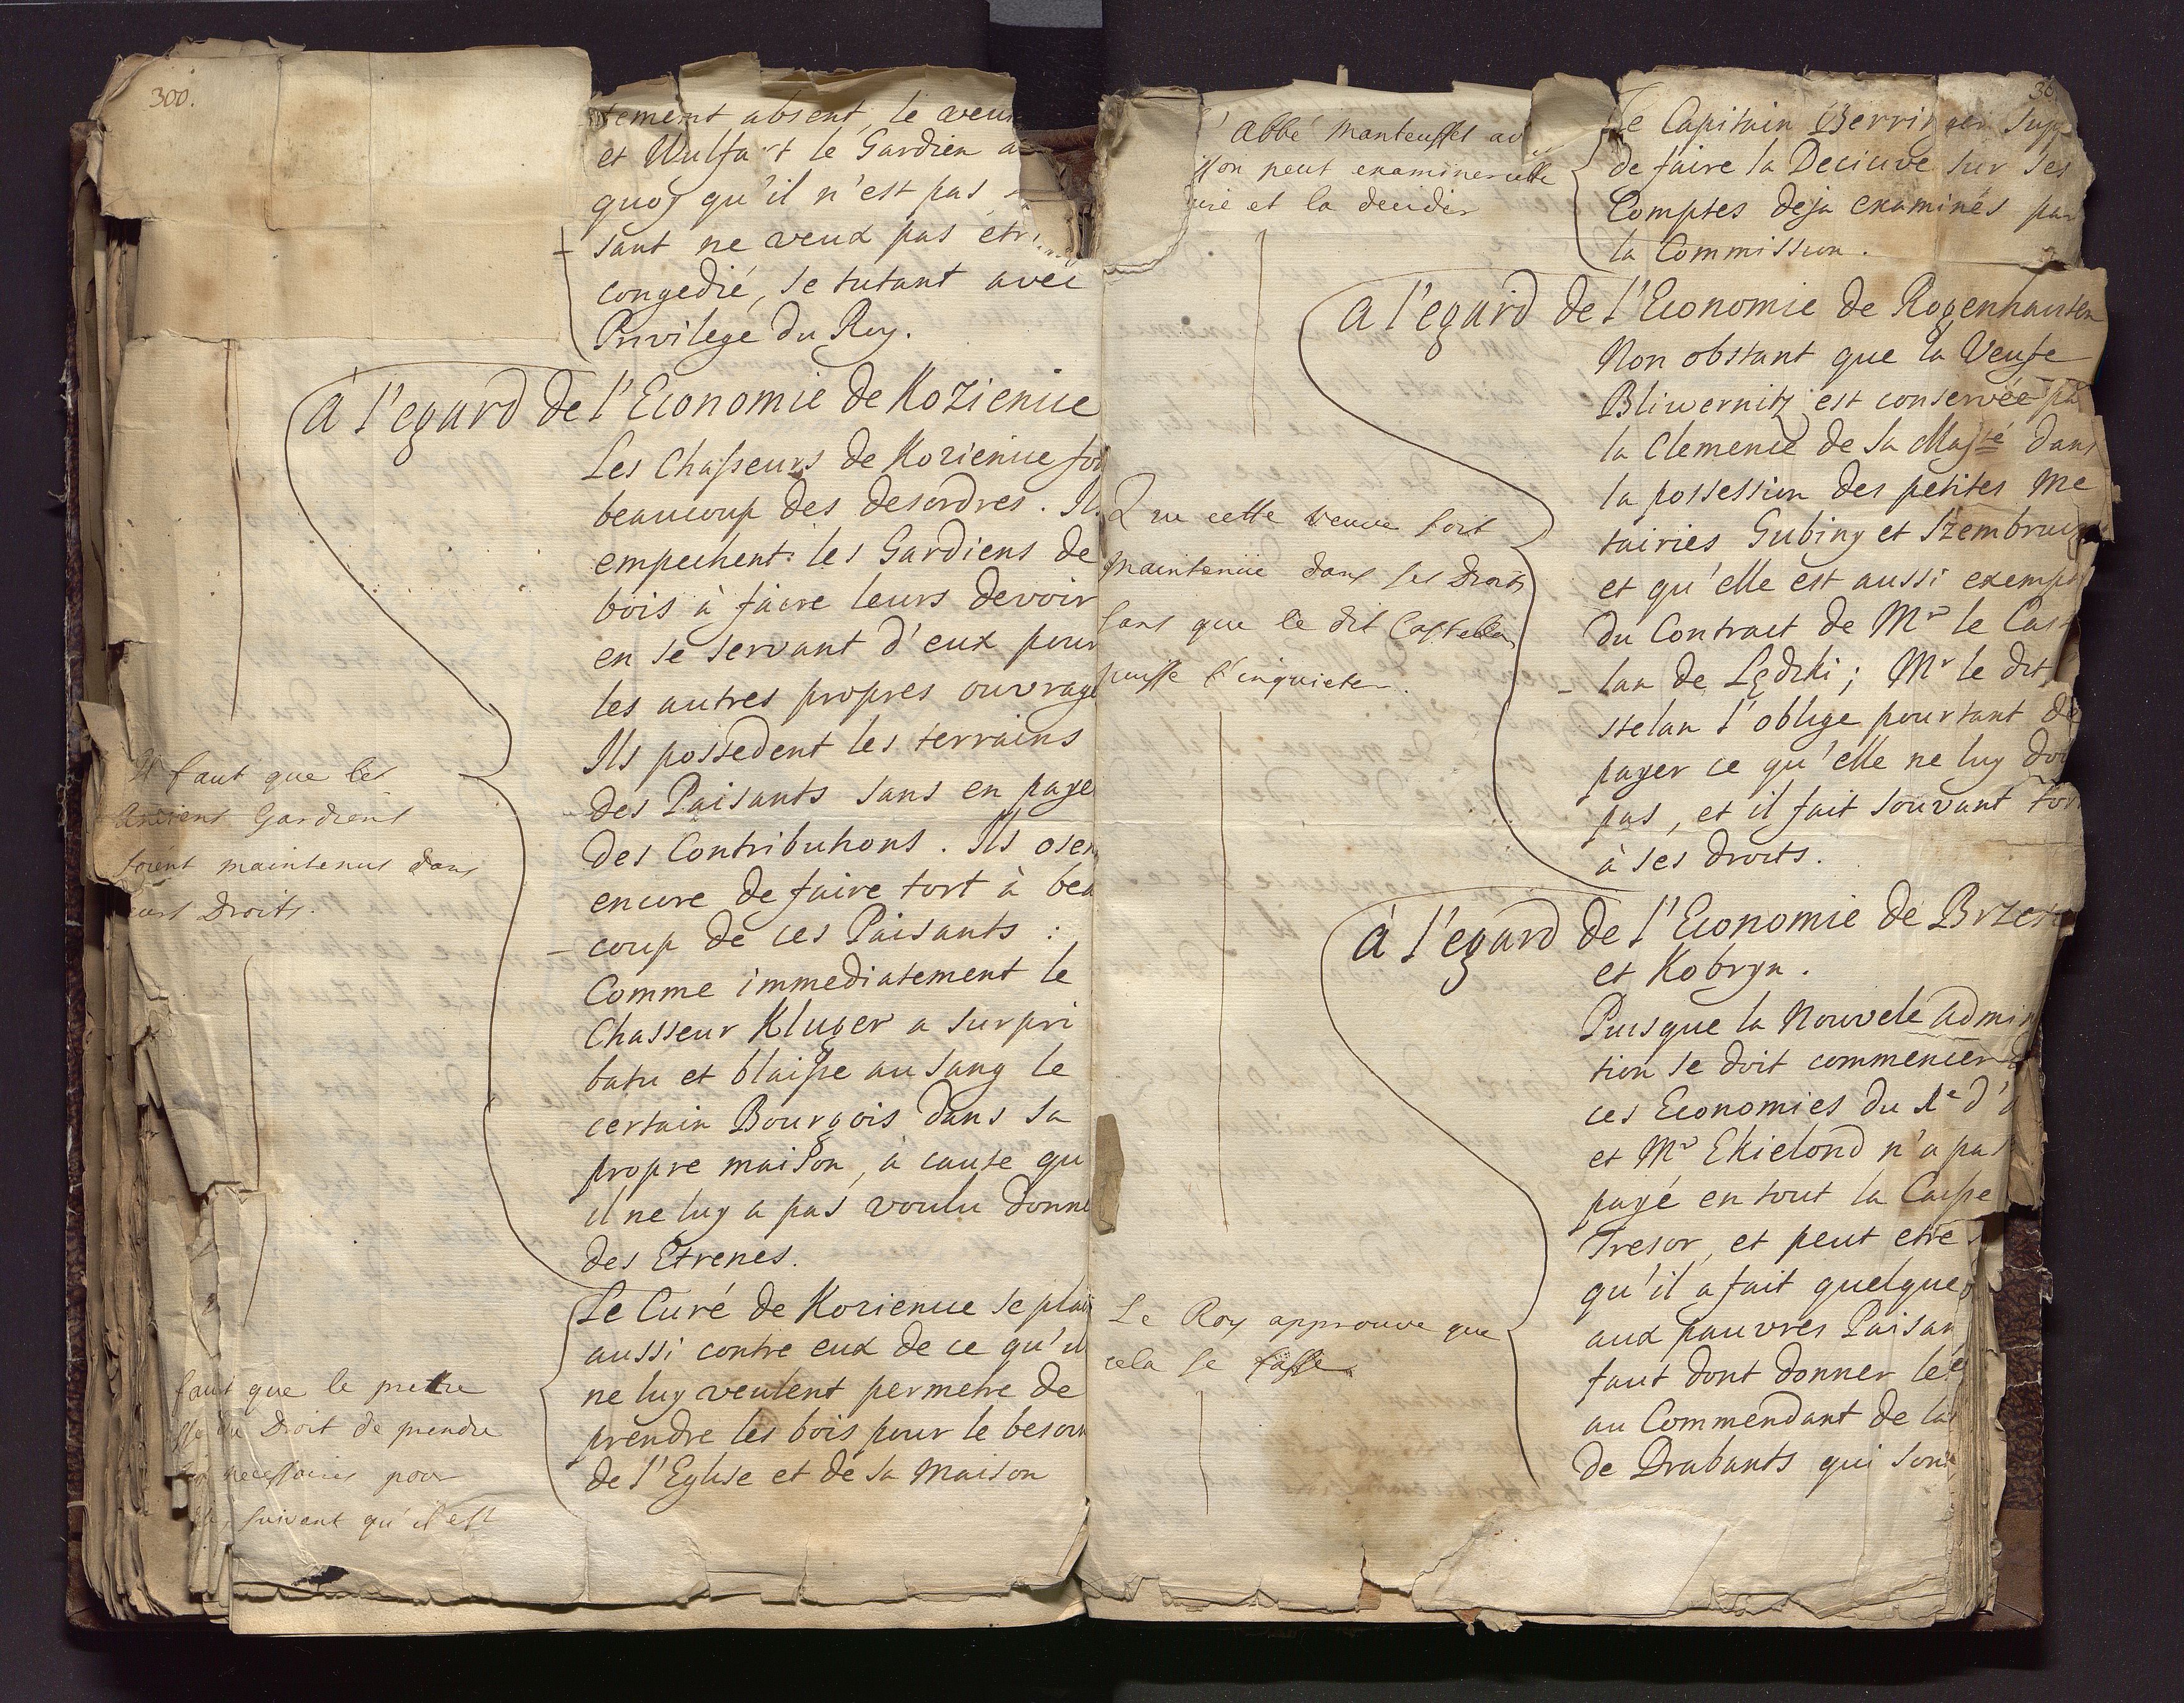 300.
tement absent, le veu
et Wulfart le Gardien a
quoy qu'il n'est pas
sant ne veux pas etr
congedié, se tutant avec
Privilege du Roy.
à l'egard de l'Economie de Kozienice
Les Chasseurs de Kozienice fo
beaucoup des desordres. Il
empechent les Gardiens de
bois à faire leurs devoir
en se servant d'eux pour
les autres propres ouvrage
Ils possedent les terrains
des Paisants sans en paye
des Contributions. Ils ose
encore de faire tort à beau
coup de ces Paisants :
Comme immediatement le
Chasseur Kluger a surpri
batu et blaisse au sang le
certain Bourgois dans sa
propre maison, à cause qu
il ne luy a pas voulu donne
des Etrenes.
Il faut que les
Anciens Gardiens
soient maintenus dans
leurs Droits.
Le Curé de Kozienice se plai
aussi contre eux de ce qu'il
ne luy veulent permetre de
prendre les bois pour le besoin
de l'Eglise et de sa Maison
faut que le prettre
du Droit de prendre
necessaires pour
suivant qu'il est
30
Le Capitain Berringer Supp
de faire la Decisive sur ses
Comptes deja examinés par
la Commission.
l'Abbé Manteuffel av
sson peut examiner cette
aire et la decider
a l'egard de l'Economie de Rogenhausen
Non obstant que la Veufe
Bliwernitz est conservée pa
la Clemence de Sa Majté dans
la possession des petites Me
tairies Gubiny et Szembruz
et qu'elle est aussi exempt
du Contract de Mr le Cas
lan de Lędzki; Mr le dit
stelan l'oblige pourtant de
payer ce qu'elle ne luy doi
pas, et il fait souvant tor
à ses droits.
Que cette veuve soit
maintenüe dans ses Droits
sans que le dit Castellan
puisse l'inquieter.
à l'egard de l'Economie de Brzes
et Kobryn.
Puisque la Nouvele admin
tion se doit commencer d
ces Economies du 1e d'
et Mr Ekielond n'a pas
payé en tout la Caisse
Tresor, et peut etre
qu'il a fait quelque
aux pauvres Paisan
faut dont donner le
au Commendant de la
de Drabants qui sont
Le Roy approuve que
cela se fasse